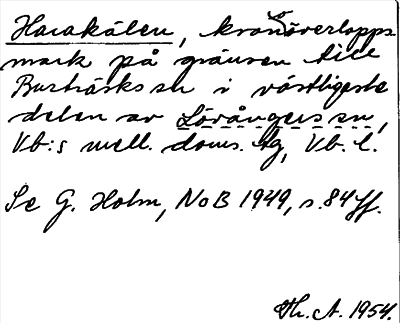 Harakälen, kronöverlopps-
mark på gränsen till
Burträsks sn i västligaste
delen av Lövångers sn,
Vb:s mell. doms. tg, Vb. l.
Se G. Holm, NoB 1949, s. 84 ff.
Th. A. 1954.